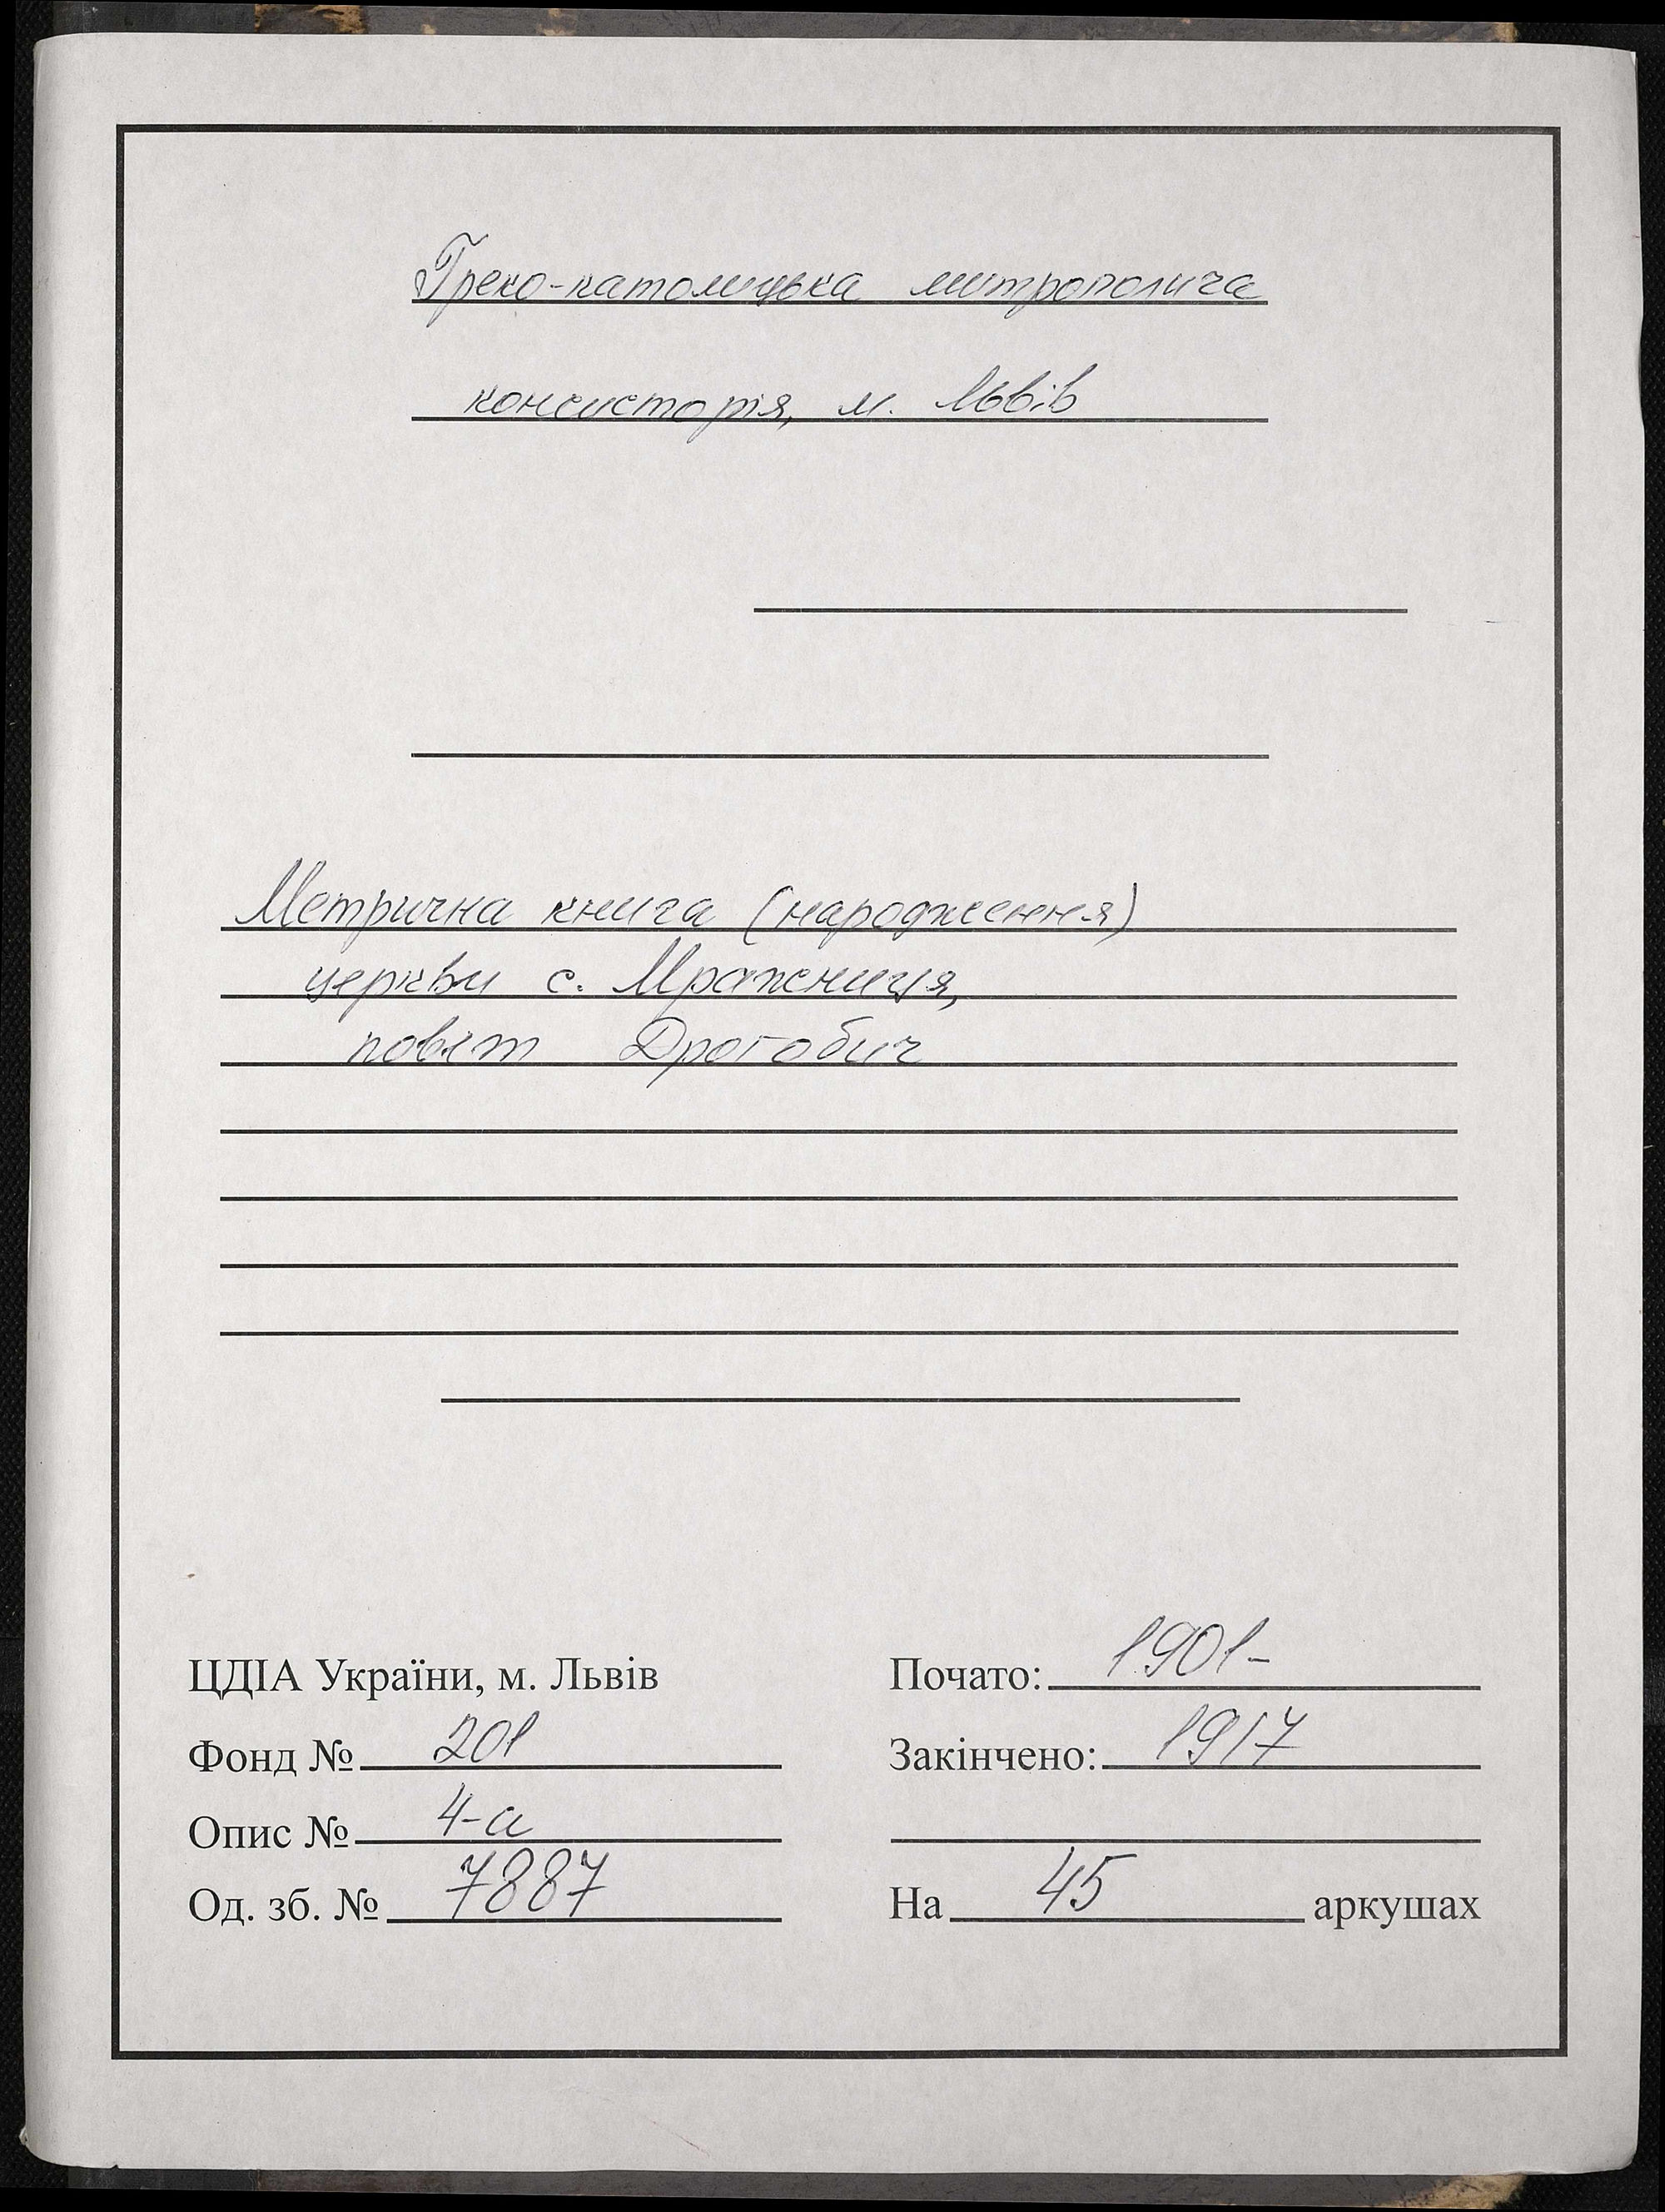 Греко-католицька митрополича
консисторія, м. Львів
Метрична книга (народження)
церкви с. Мражниця,
повіт Дрогобич
ЦДІА України, м. Львів
Фонд № 201
Опис № 4-а
Од. зб. № 7887
Почато: 1901-
Закінчено: 1917
На 45 аркушах